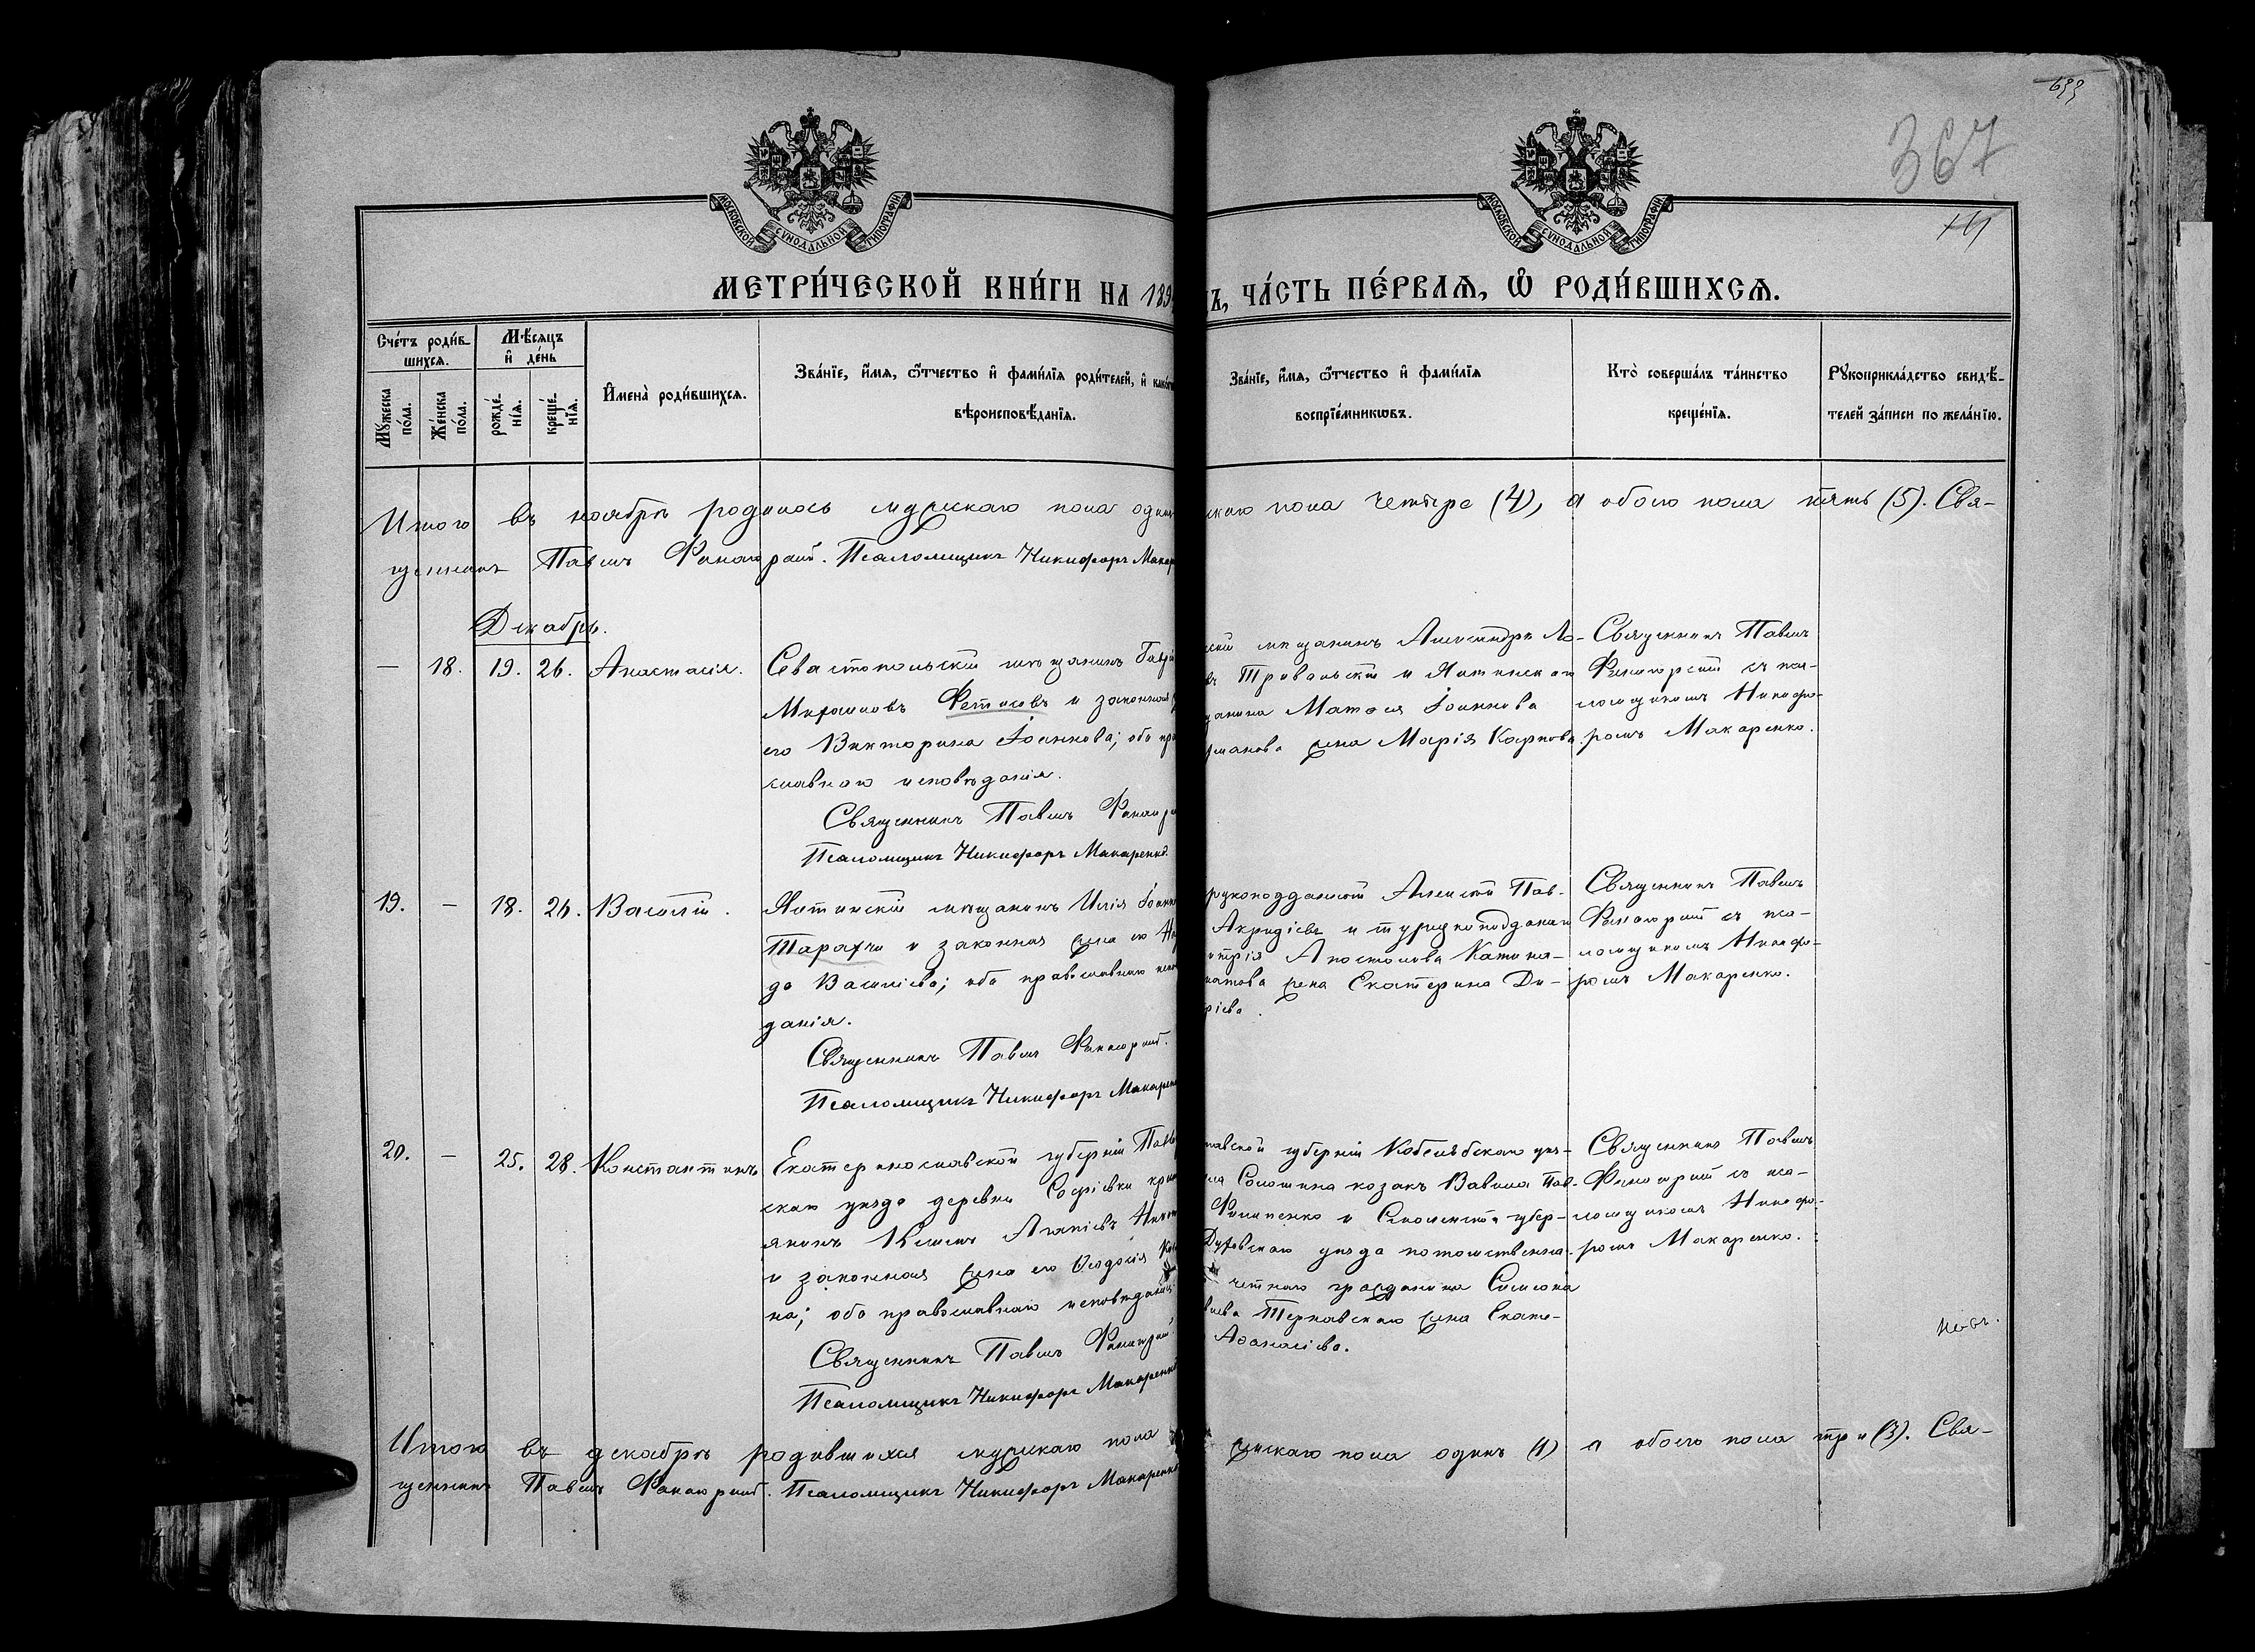 699
367
МОСКОВСКОЙ СѴНОДАЛЬНОЙ ТИПОГРАФІИ
МОСКОВСКОЙ СѴНОДАЛЬНОЙ ТИПОГРАФІИ
МЕТРИ́ЧЕСКОЙ КНИ́ГИ НА 189
Ъ, ЧА́СТЬ ПЕ́РВАЯ, Ѡ҆ РОДИ́ВШИХСЯ.
Сче́тъ роди́в-
шихся.
Мѣ́сяцъ
и҆ де́нь
Мꙋ́жеска
по́ла.
Же́нска
по́ла.
рожде́-
нїя.
креще́-
нїя.
И҆мена̀ роди́вшихся.
Зва́нїе, и҆́мя, ѻ҆́тчество и҆ фами́лїя роди́телей, и҆ како́гѡ
вѣроисповѣ́данїя.
Зва́нїе, и҆́мя, ѻ҆́тчество и҆ фами́лїя
воспрїе́мникѡвъ.
Кто̀ соверша́лъ та́инство
креще́нїя.
Рꙋкоприкла́дство свидѣ́-
телей за́писи по жела́нїю.
Итого въ ноябрѣ родилось мужскаго пола один
скаго пола четыре (4), а обоего пола пять (5). Свя-
щенникъ Павелъ Фанагорій. Псаломщикъ Никифоръ Макар
Декабрь.
—
18.
19.
26.
Анастасія.
Севастопольскій мѣщанинъ Гаврі
Михаиловъ Фетисовъ и законная
его Викторина Іоаннова; оба пра
славнаго исповѣданія.
Священникъ Павелъ Фанагор
Псаломщикъ Никифоръ Макаренко.
скій мѣщанинъ Александръ Ло-
въ Тривольскій и Ялтинскаго
щанина Матѳея Іоаннова
жена Марія Карпова.
Священникъ Павелъ
Фанагорскій съ пса-
ломщикомъ Никифо-
ромъ Макаренко.
19.
—
18.
26.
Василій.
Ялтинскій мѣщанинъ Илія Іоанн
Тарахчи и законная жена его На
да Василіева; оба православнаго испо
данія.
Священникъ Павелъ Фанагорій.
Псаломщикъ Никифоръ Макарен
рецкоподданный Алексѣй Пав-
Акридіевъ и турецкоподданнаго
итрія Апостолова
жена Екатерина Ди-
ріева.
Священникъ Павелъ
Фанагорій съ пса-
ломщикомъ Никифо-
ромъ Макаренко.
20.
—
25.
28.
Константинъ
Екатеринославской губерніи Павло
скаго уѣзда деревни Софіевки крест
янинъ Климъ Агапіевъ
и законная жена его Ѳеодосія
на; оба православнаго исповѣданія.
Священникъ Павелъ Фанагорій
Псаломщикъ Никифоръ Макаренко
тавской губерніи Кобелякскаго уѣз-
Солошина козакъ Вавила Пав-
Филипенко и Смоленской губер-
Духовскаго уѣзда потомственна-
четнаго гражданина Симеона
Терпавскаго жена Екате-
Аѳанасіева.
Священникъ Павелъ
Фанагорій съ пса-
ломщикомъ Никифо-
ромъ Макаренко.
Итого въ декабрѣ родившихся мужскаго пола
женскаго пола одинъ (1) а обоего пола три (3). Свя-
щенникъ Павелъ Фанагорій. Псаломщикъ Никифоръ Макаренко